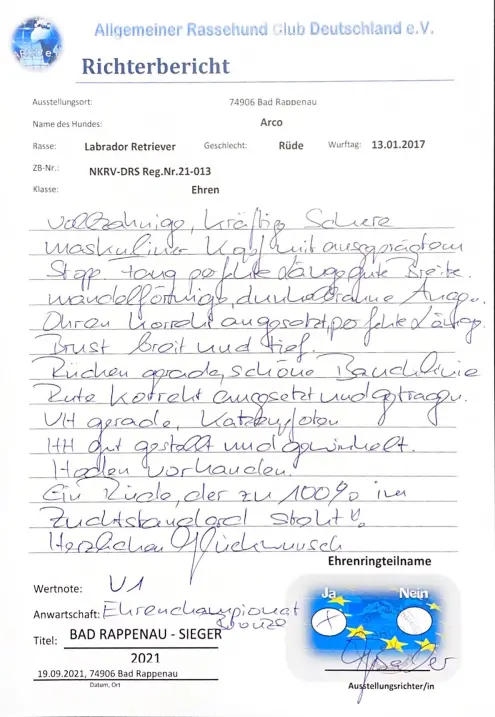 Allgemeiner Rassehund Club Deutschland e.V.
Richterbericht
Ausstellungsort: 74906 Bad Rappenau
Name des Hundes: Arco
Rasse: Labrador Retriever Geschlecht: Rüde Wurftag: 13.01.2017
ZB-Nr.: NKRV-DRS Reg.Nr.21-013
Klasse: Ehren
vollzahnige, kräftig Schere
maskuliner Kopf mit ausgeprägtem
Stopp. Fang perfekte Länge gute Breite.
mandelförmige, dunkelbraune Augen.
Ohren korrekt angesetzt, perfekte Länge.
Brust breit und tief.
Rücken gerade, schöne Bauchlinie
Rute korrekt angesetzt und getragen.
VH gerade, Katzenpfoten
HH gut gestellt und gewinkelt.
Hoden vorhanden.
Ein Rüde, der zu 100% im
Zuchtstandard steht!
Herzlichen Glückwunsch
Ehrenringteilname
Ja Nein
Wertnote: V1
Anwartschaft: Ehrenchampionat
Bronze
Titel: BAD RAPPENAU - SIEGER
2021
19.09.2021, 74906 Bad Rappenau
Datum, Ort
Ausstellungsrichter/in